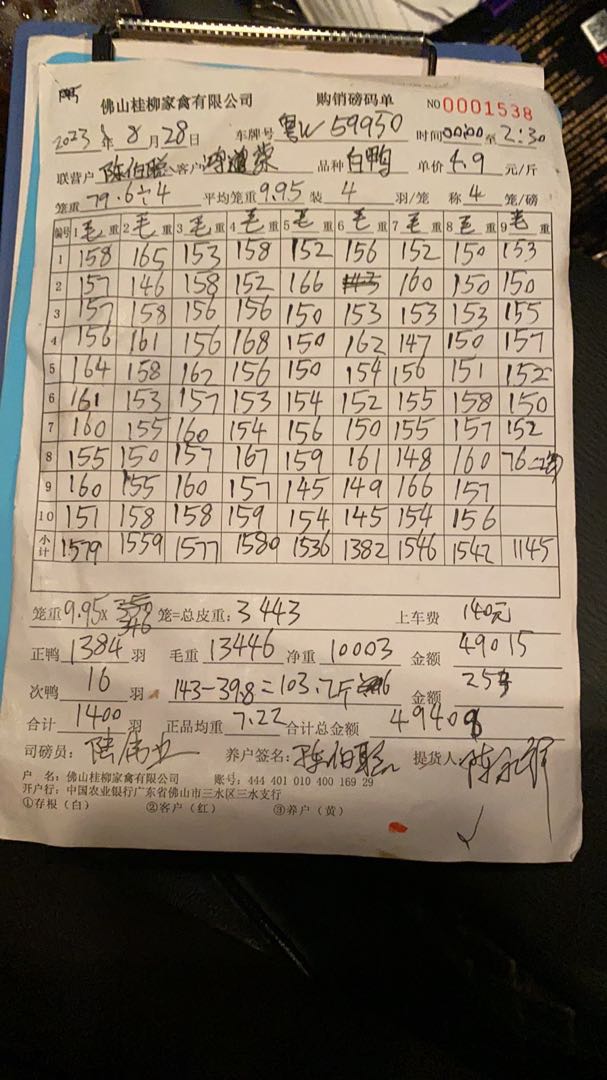 佛山桂柳家禽有限公司 购销磅码单 NO 0001538
2023年 8月 28日 车牌号 粤W 59950 时间 00:00 至 2:30
联营户 陈伯聪 客户 品种 白鸭 单价 4.9 元/斤
笼重 79.6÷4 平均笼重 9.95 装 4 羽/笼 称 4 笼/磅
编号 1 毛 重 2 毛 重 3 毛 重 4 毛 重 5 毛 重 6 毛 重 7 毛 重 8 毛 重 9 毛 重
1 158 165 153 158 152 156 152 150 153
2 157 146 158 152 166 160 150 150
3 157 158 156 156 150 153 153 153 155
4 156 161 156 168 150 162 147 150 157
5 164 158 162 156 150 154 156 151 152
6 161 153 157 153 154 152 155 158 150
7 160 155 160 154 156 150 155 157 152
8 155 150 157 167 159 161 148 160 76
9 160 155 160 157 145 149 166 157
10 151 158 158 159 154 145 154 156
小计 1579 1559 1577 1580 1536 1382 1546 1542 1145
笼重 9.95 × 346 笼=总皮重: 3443 上车费 140元
正鸭 1384 羽 毛重 13446 净重 10003 金额 49015
次鸭 16 羽 143-39.8=103.2斤 金额
合计 1400 羽 正品均重 7.22 合计总金额
司磅员: 养户签名: 陈伯聪 提货人:
户 名: 佛山桂柳家禽有限公司 账号: 444 401 010 400 169 29
开户行: 中国农业银行广东省佛山市三水区三水支行
①存根(白) ②客户(红) ③养户(黄)